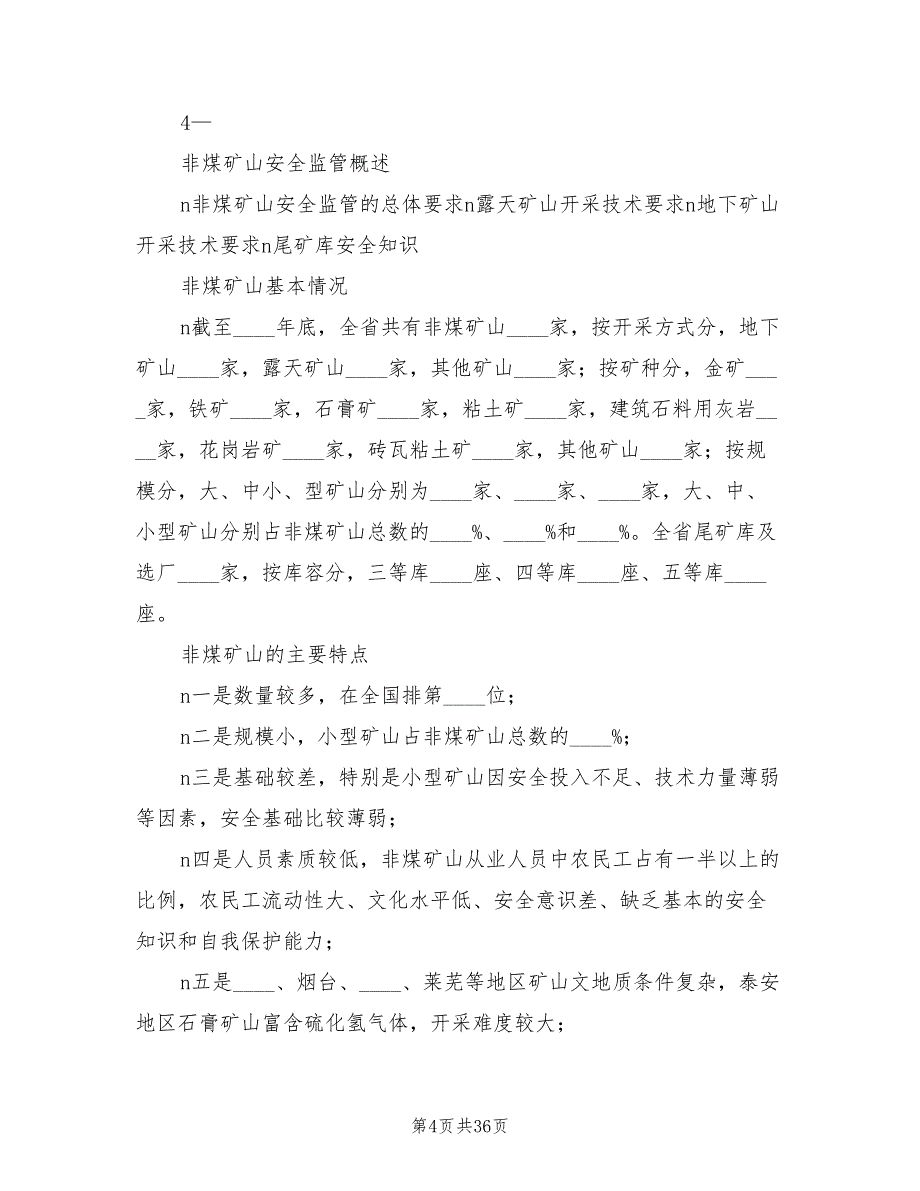 4—
非煤矿山安全监管概述
n非煤矿山安全监管的总体要求n露天矿山开采技术要求n地下矿山
开采技术要求n尾矿库安全知识
非煤矿山基本情况
n截至____年底，全省共有非煤矿山____家，按开采方式分，地下
矿山____家，露天矿山____家，其他矿山____家；按矿种分，金矿___
_家，铁矿____家，石膏矿____家，粘土矿____家，建筑石料用灰岩__
__家，花岗岩矿____家，砖瓦粘土矿____家，其他矿山____家；按规
模分，大、中小、型矿山分别为____家、____家、____家，大、中、
小型矿山分别占非煤矿山总数的____%、____%和____%。全省尾矿库及
选厂____家，按库容分，三等库____座、四等库____座、五等库____
座。
非煤矿山的主要特点
n一是数量较多，在全国排第____位；
n二是规模小，小型矿山占非煤矿山总数的____%；
n三是基础较差，特别是小型矿山因安全投入不足、技术力量薄弱
等因素，安全基础比较薄弱；
n四是人员素质较低，非煤矿山从业人员中农民工占有一半以上的
比例，农民工流动性大、文化水平低、安全意识差、缺乏基本的安全
知识和自我保护能力；
n五是____、烟台、____、莱芜等地区矿山文地质条件复杂，泰安
地区石膏矿山富含硫化氢气体，开采难度较大；
第4页共36页